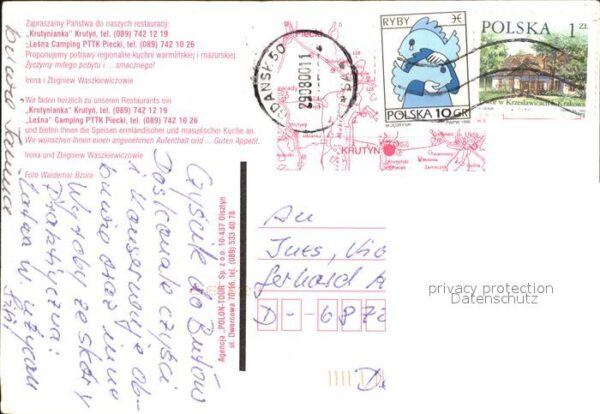 Zapraszamy Państwa do naszych restauracji:
"Krutynianka" Krutyń, tel. (089) 742 12 19
"Leśna Camping PTTK Piecki, tel. (089) 742 10 26
Proponujemy potrawy regionalne kuchni warmińskiej i mazurskiej
Życzymy miłego pobytu i ... smacznego!
Irena i Zbigniew Waszkiewiczowie
Wir laden herzlich zu unseren Restaurants ein
"Krutynianka" Krutyń, tel. (089) 742 12 19
"Leśna" Camping PTTK Piecki, tel. (089) 742 10 26
und bieten Ihnen die Speisen ermländischer und masurischer Kuche an.
Wir wünschen Ihnen einen angenehmen Aufenthalt und ... Guten Appetit.
Irena und Zbigniew Waszkiewiczowie
Foto Waldemar Bzura
Czyścik do Butów
Doskonale czyści
i konserwuje ob-
buwie oraz inne
Wyroby ze skóry
Praktyczna i
Łatwa w użyciu
Agencja „POLON-TOUR" Sp. z o.o. 10-437 Olsztyn
ul. Dworcowa 70/16, tel. (089) 533 40 78
Piecki
KRUTYŃ
GDAŃSK 50
29080011
RYBY
POLSKA 10 GR
POLSKA 1 ZŁ
w Krzesławicach k. Krakowa
An
Gerhard
D - 6872
privacy protection
Datenschutz